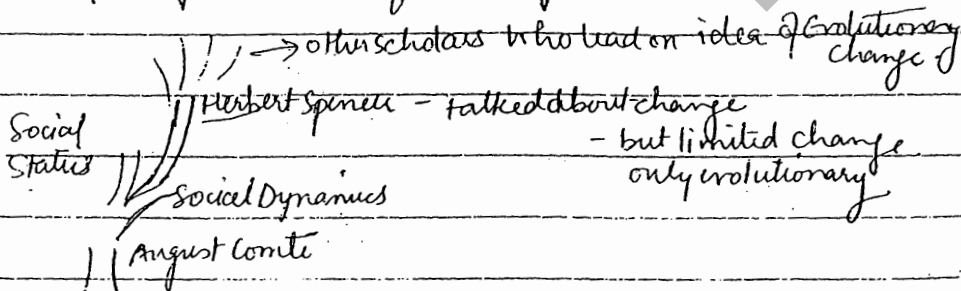 → other scholars who lead on idea of Evolutionary
change
Herbert Spencer - talked about change
Social
Status
- but limited change
only evolutionary
Social Dynamics
August Comte